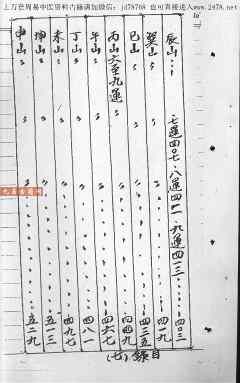 上万套周易中医资料古籍请加微信：jd78768 也可直接进入www.2478.net
辰山 七運四〇七·八運四一一·九運四一三 四〇三
巽山 四一九
巳山 四三五
丙山六至九運 四四九
午山 四六七
丁山 四八一
未山 四九七
坤山 五一三
申山 五二九
目錄（七）